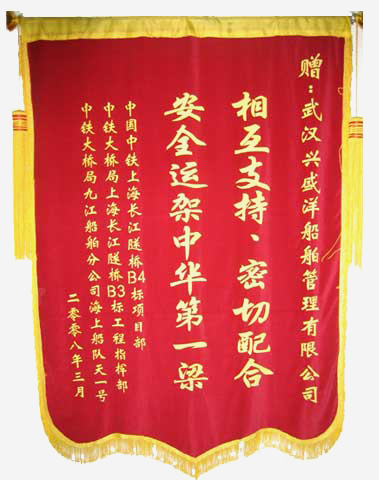 赠：武汉兴盛洋船舶管理有限公司
相互支持、密切配合
安全运架中华第一梁
中国中铁上海长江隧桥B4标项目部
中铁大桥局上海长江隧桥B3标工程指挥部
中铁大桥局九江船舶分公司海上船队天一号
二零零八年三月